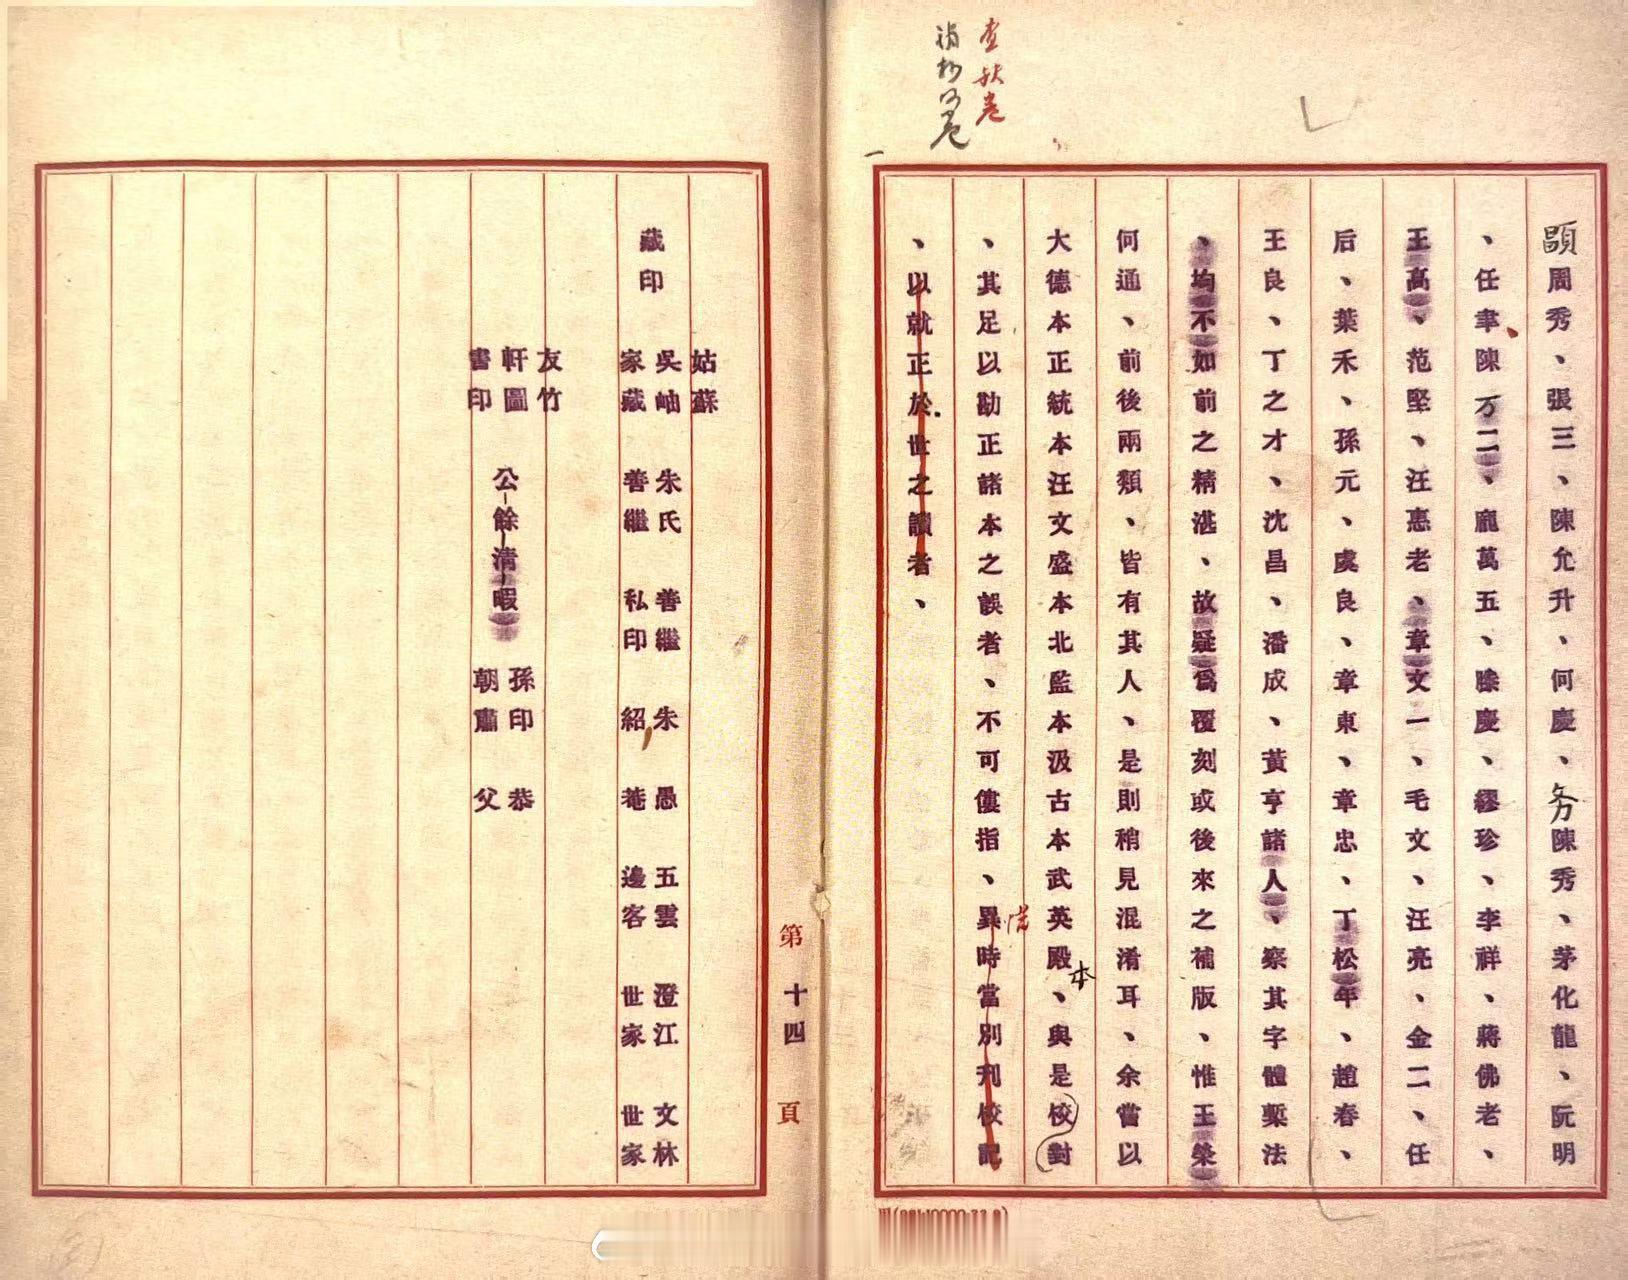 查缺卷
顕周秀、張三、陳允升、何慶、务陳秀、茅化龍、阮明
、任聿陳万二、龐萬五、滕慶、繆珍、李祥、蔣佛老、
王高、范堅、汪惠老、章文一、毛文、汪亮、金二、任
后、葉禾、孫元、虞良、章東、章忠、丁松年、趙春、
王良、丁之才、沈昌、潘成、黃亨諸人、察其字體槧法
、均不如前之精湛、故疑爲覆刻或後來之補版、惟王榮
何通、前後兩類、皆有其人、是則稍見混淆耳、余嘗以
大德本正統本汪文盛本北監本汲古本武英殿本、與是校對
、其足以勘正諸本之誤者、不可僂指、異時當別刊校記
、以就正於世之讀者、
藏印
姑蘇
吳岫
家藏
朱氏
善繼
善繼
私印
朱
紹
愚
菴
五雲
邊客
澄江
世家
文林
世家
友竹
軒圖
書印
公餘清暇
孫印
朝肅
恭
父
第十四頁